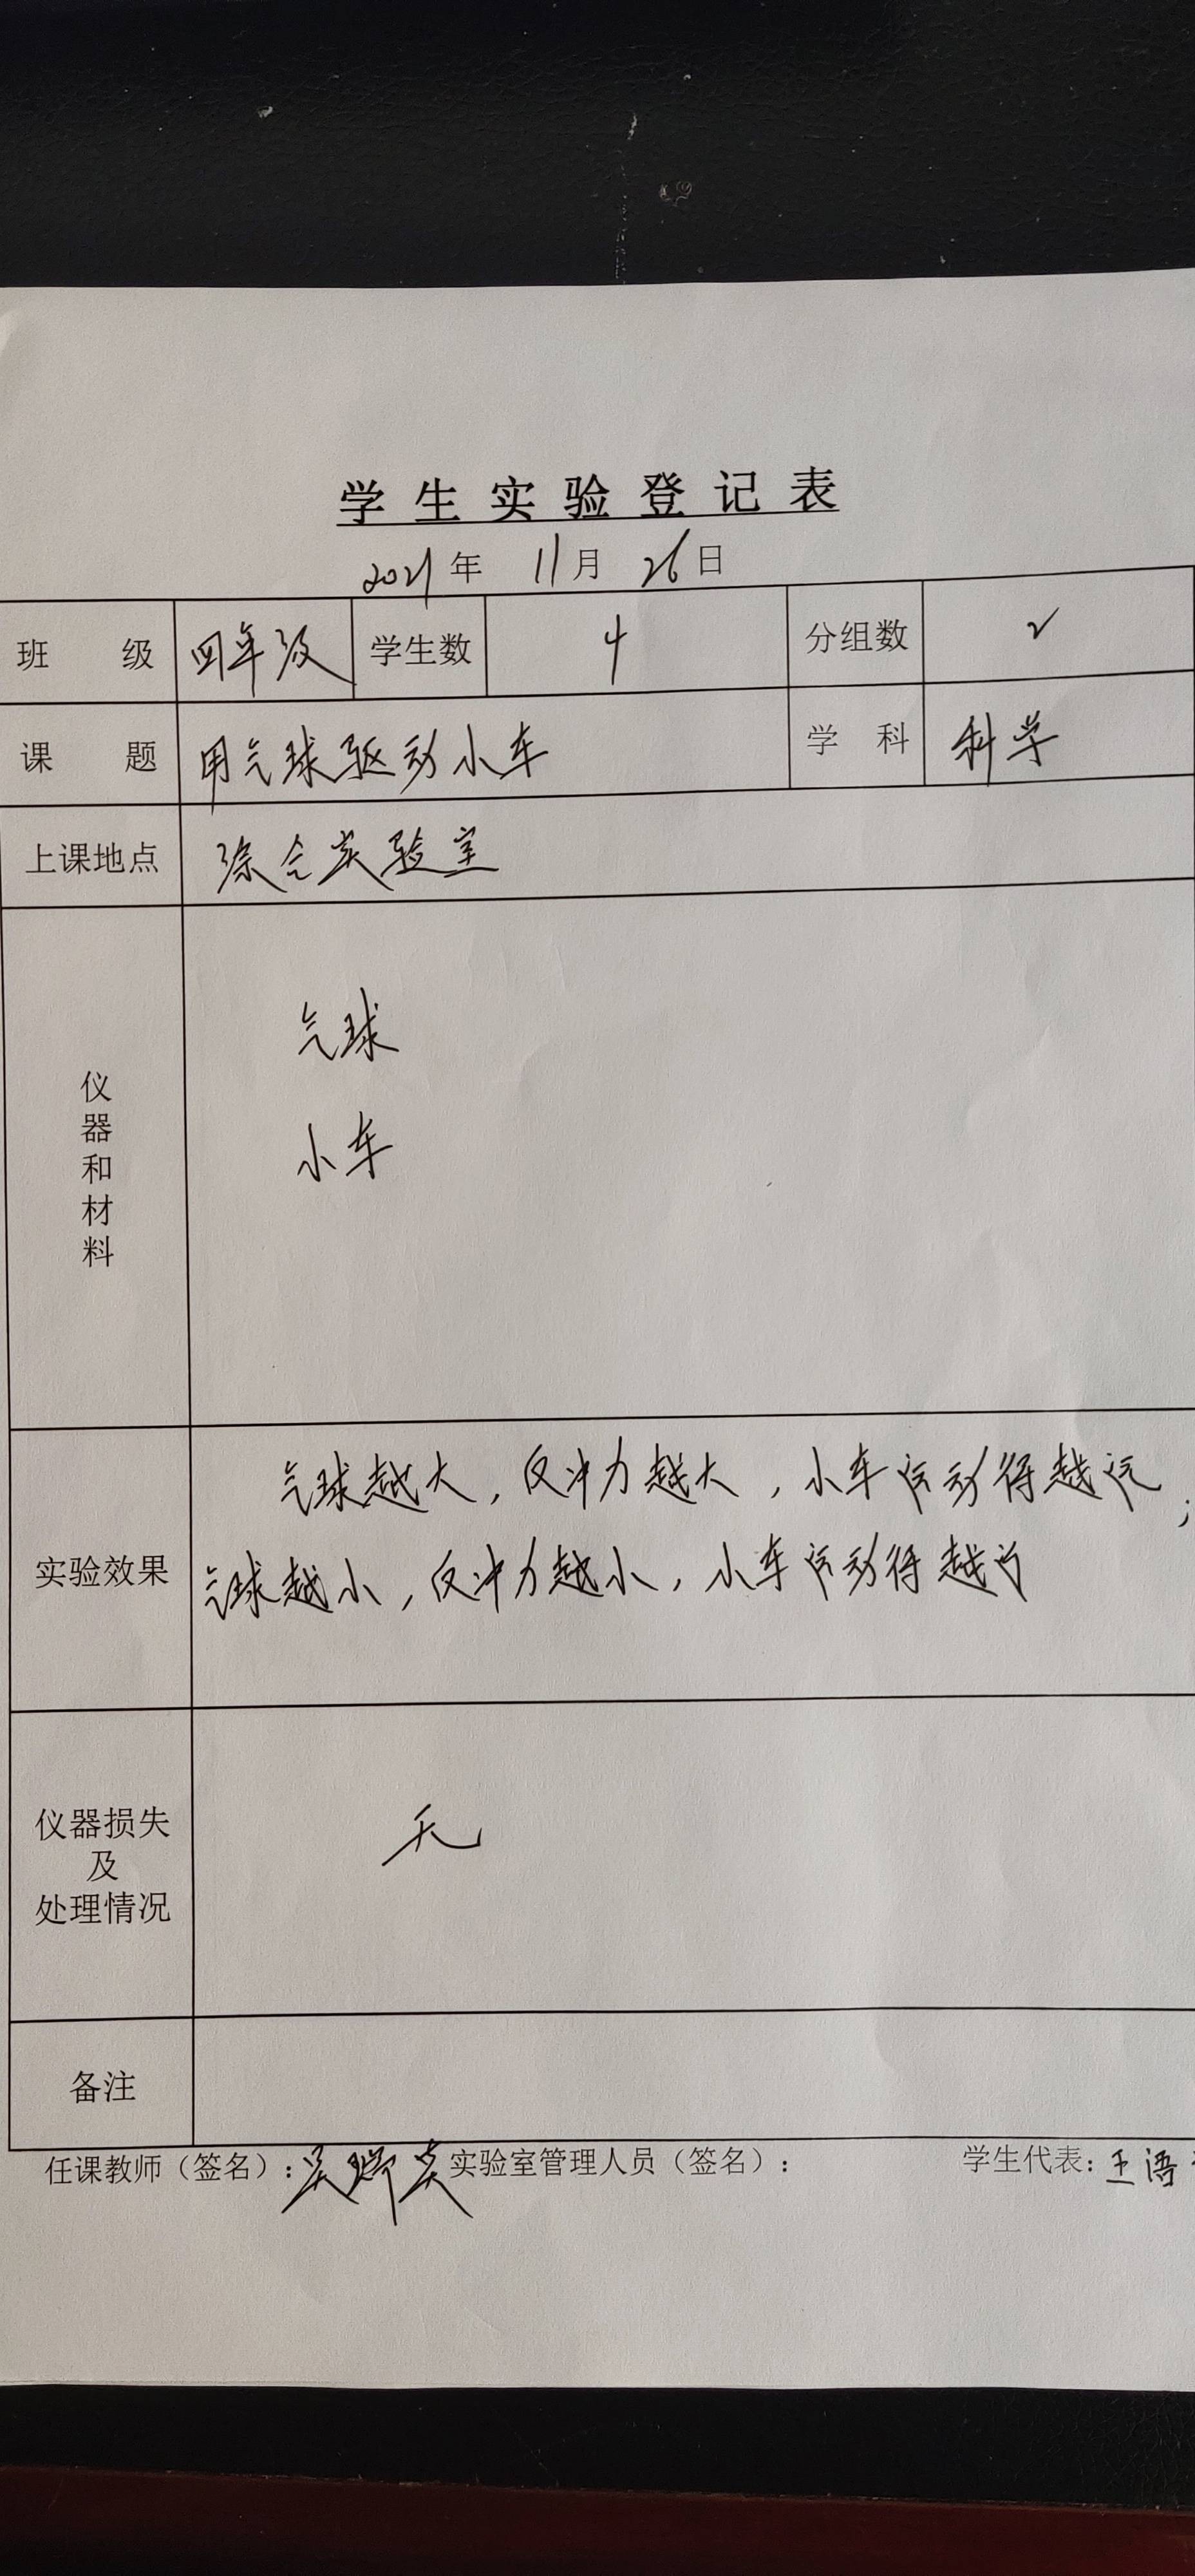 学生实验登记表
2021年 11月 26日
班 级 四年级 学生数 4 分组数 2
课 题 用气球驱动小车 学 科 科学
上课地点 综合实验室
仪器和材料
气球
小车
实验效果
气球越大,反冲力越大,小车运动得越远;
气球越小,反冲力越小,小车运动得越近
仪器损失
及
处理情况
无
备注
任课教师(签名): 实验室管理人员(签名): 学生代表:王语